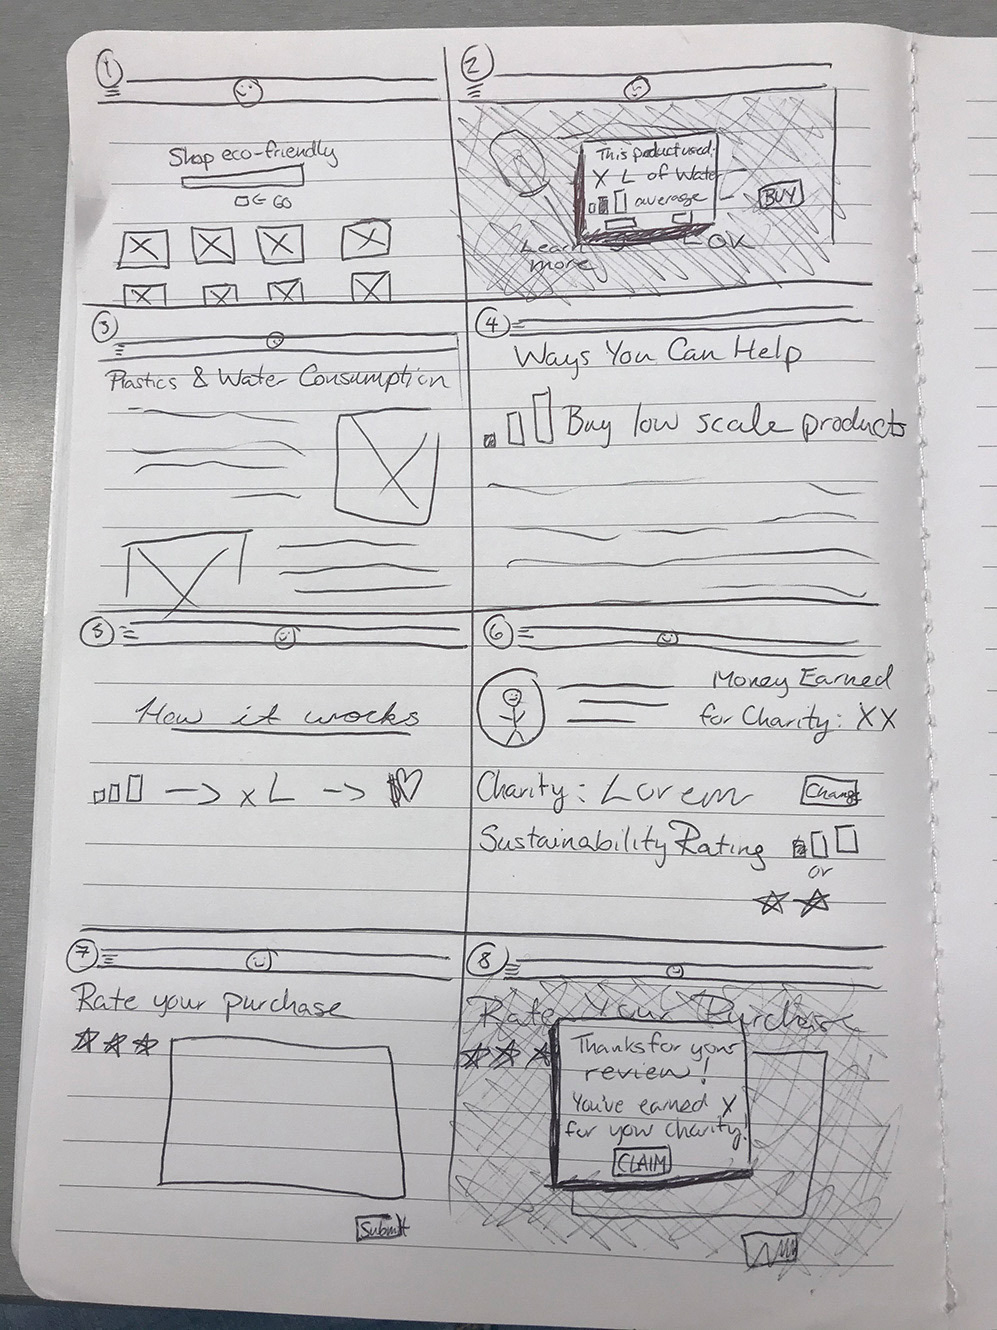 1
Shop eco-friendly
GO
2
This product used
X L of Water
average
BUY
Learn
more
OK
3
Plastics & Water Consumption
4
Ways You Can Help
Buy low scale products
5
How it works
x L
$
6
Money Earned
for Charity: XX
Charity: Lorem
Change
Sustainability Rating
or
7
Rate your purchase
Submit
8
Rate Your Purchase
Thanks for your
review!
You've earned X
for your charity!
CLAIM